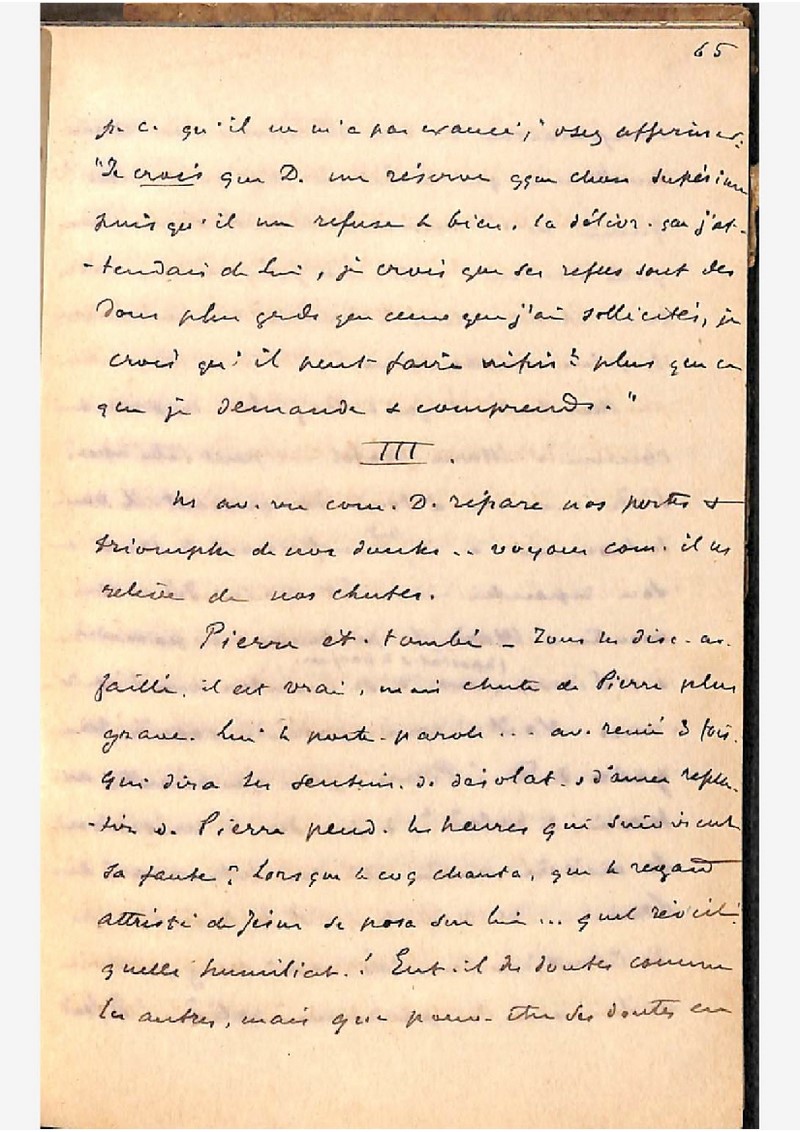 65
p. c. qu'il ne m'a pas exaucé," osez affirmer:
"Je crois que D. me réserve qque chose supérieure
puisqu'il me refuse le bien, la délivr. que j'at-
-tendais de lui, je crois que ses refus sont des
dons plus grds que ceux que j'ai sollicités, je
crois qu'il peut faire infinit plus que ce
que je demande & comprends."
III.
Ns av. vu com. D. répare nos pertes &
triomphe de nos doutes .. voyons com. il ns
relève de nos chutes.
Pierre ét. tombé - Tous les disc. av.
failli, il est vrai, mais chute de Pierre plus
grave. Lui le porte-parole ... av. renié 3 fois.
Qui dira les sentim. de désolat. & d'amer
-tion de Pierre pend. les heures qui suivirent
sa faute? Lorsque le coq chanta, que le regard
attristé de Jésus se posa sur lui ... quel réveil!
quelle humiliat.! Eut-il des doutes comme
les autres, mais que pouv. être ses doutes en